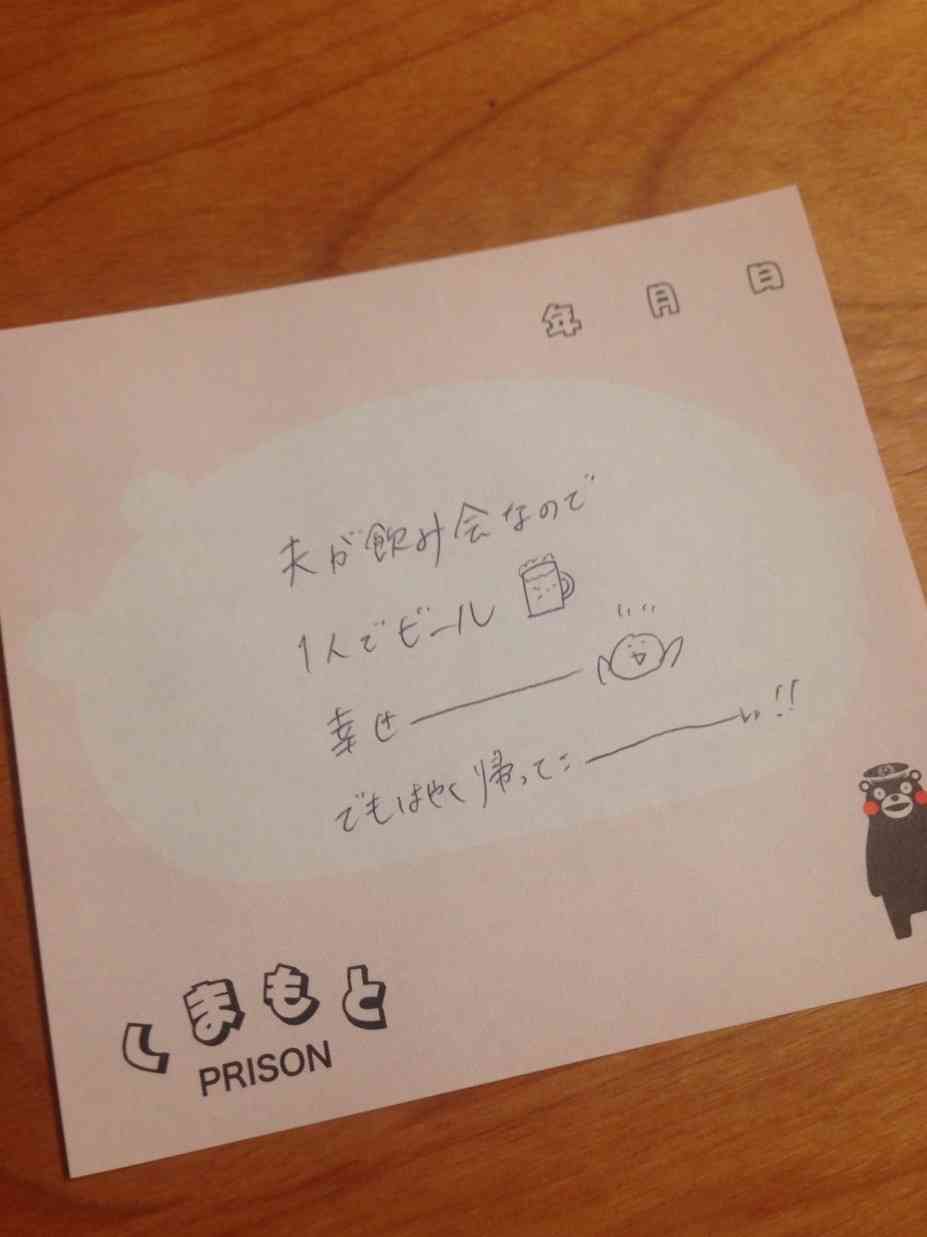 年 月 日
夫が飲み会なので
1人でビール
幸せーーー
でもはやく帰ってこーーーい!!
くまもと
PRISON